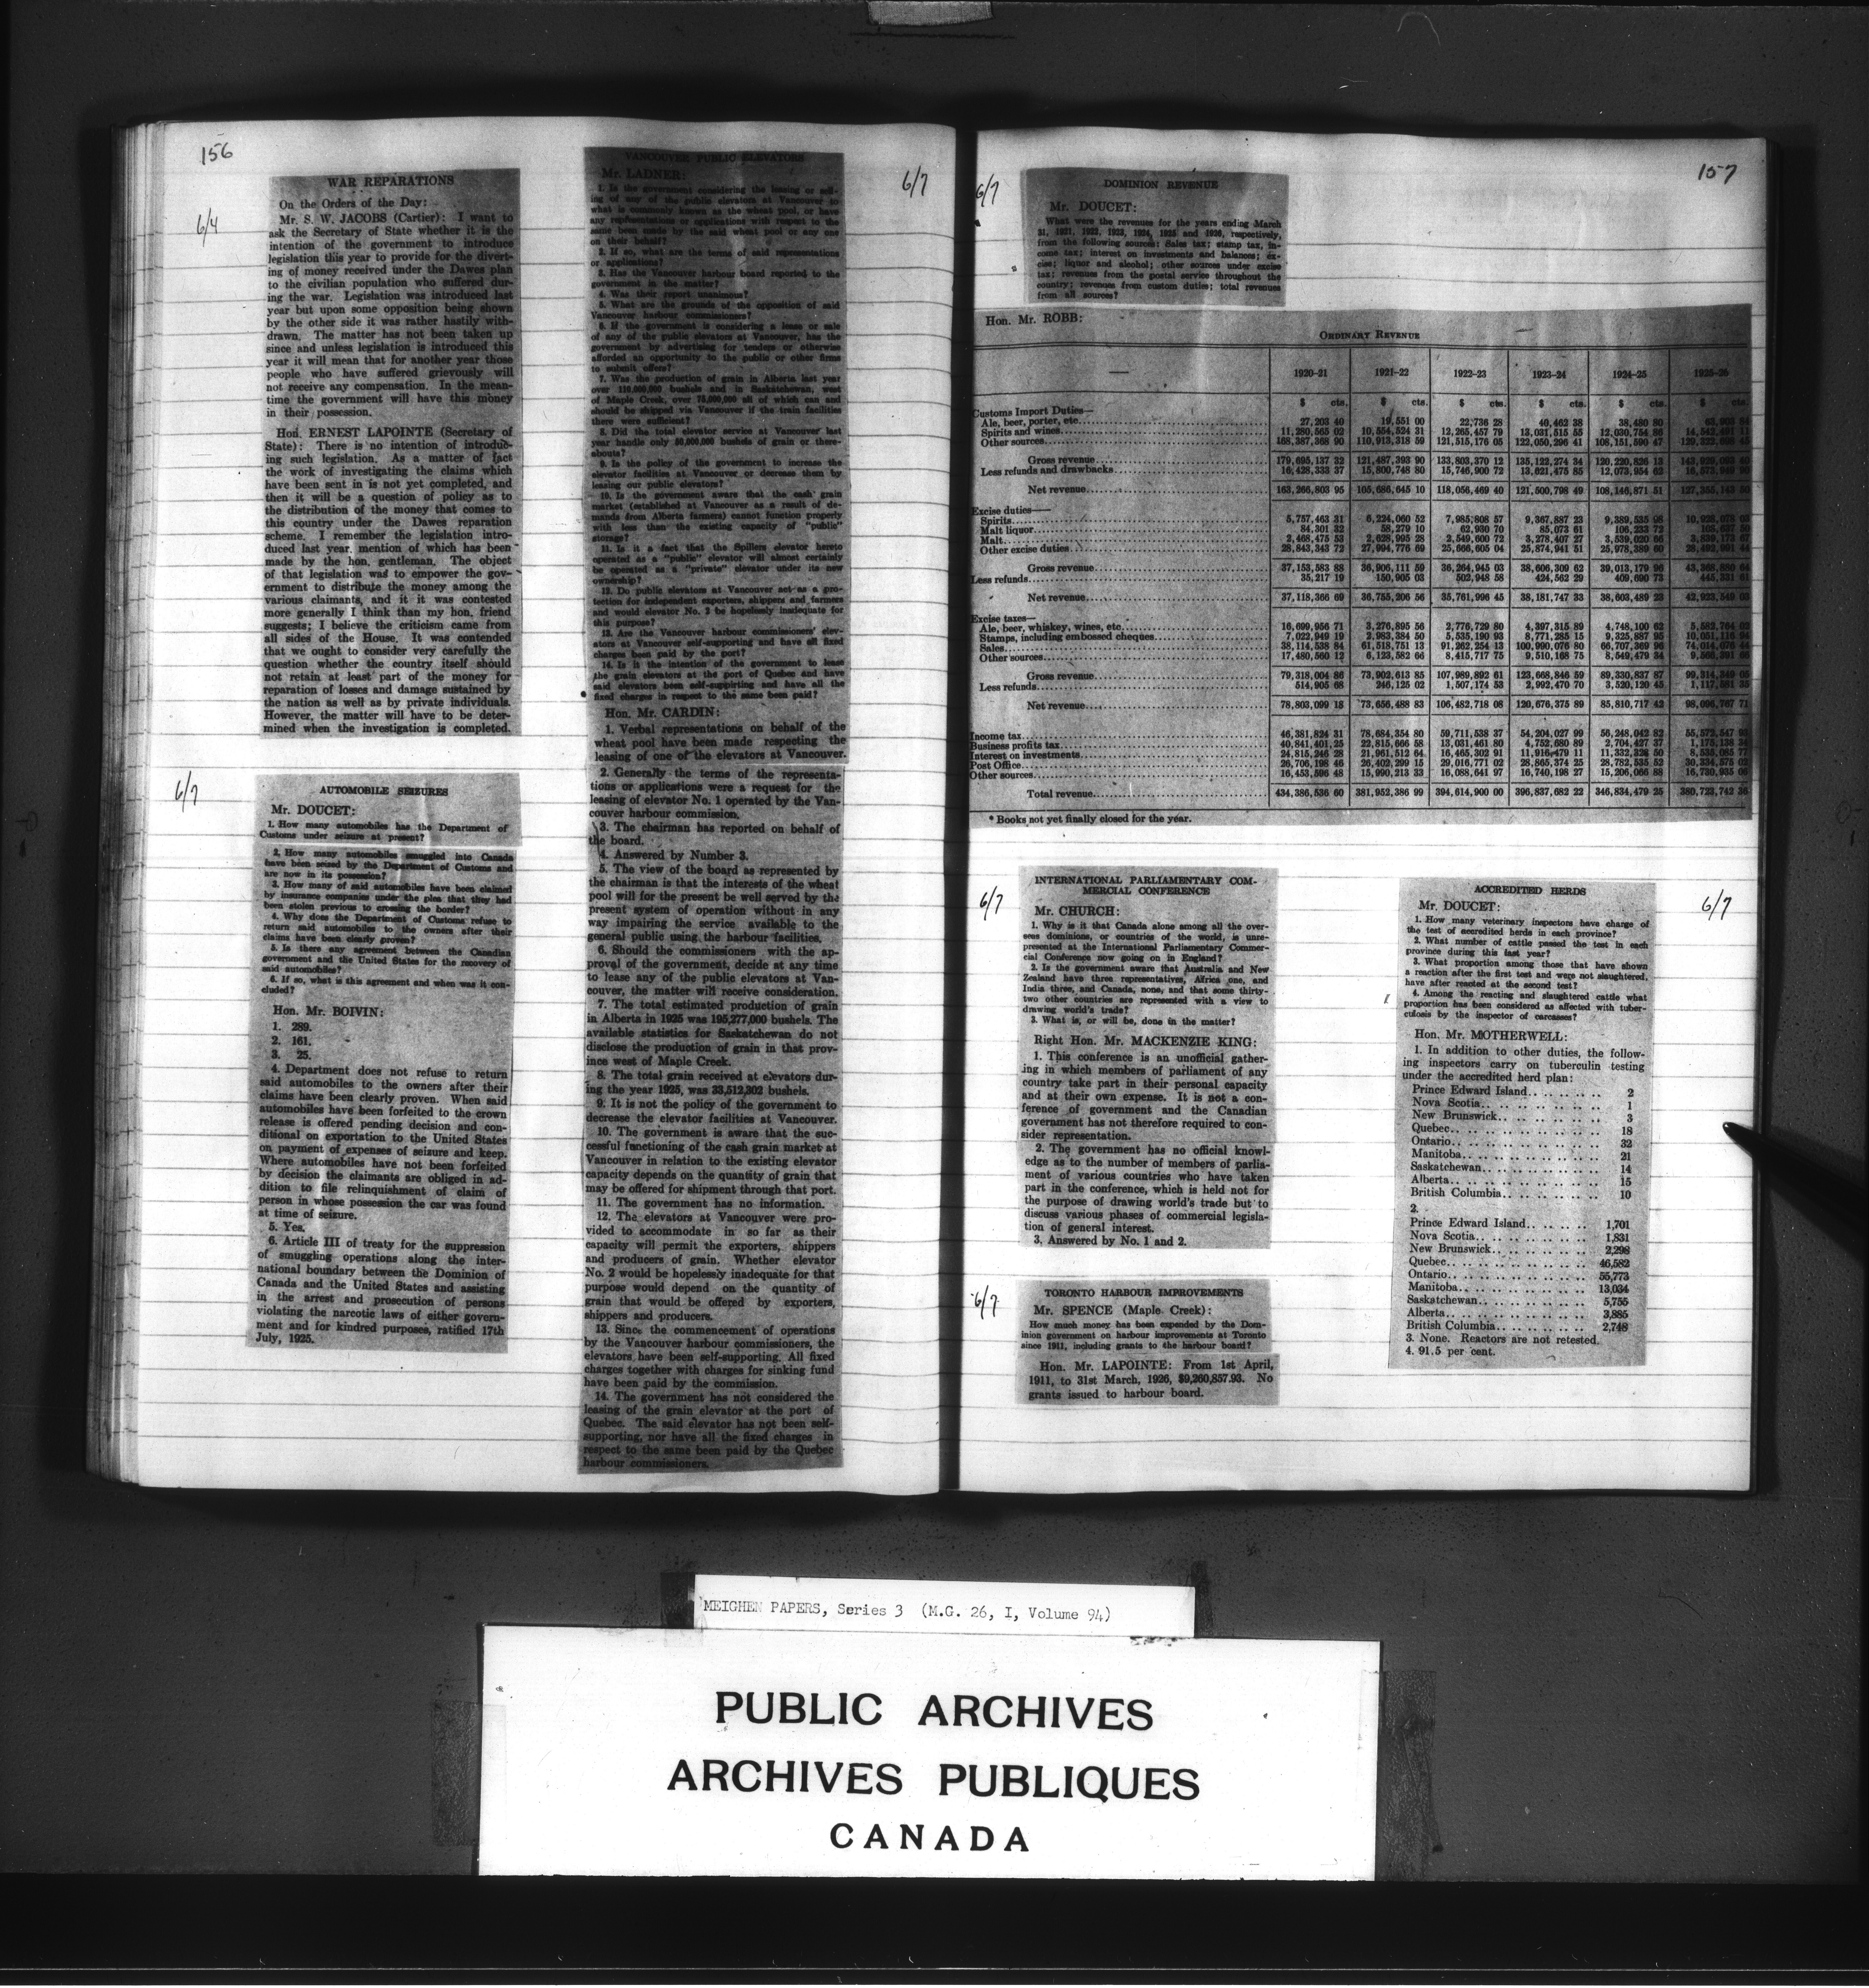 156
WAR REPARATIONS
6/4
On the Orders of the Day:
Mr. S. W. JACOBS (Cartier): I want to
ask the Secretary of State whether it is the
intention of the government to introduce
legislation this year to provide for the divert-
ing of money received under the Dawes plan
to the civilian population who suffered dur-
ing the war. Legislation was introduced last
year but upon some opposition being shown
by the other side it was rather hastily with-
drawn. The matter has not been taken up
since and unless legislation is introduced this
year it will mean that for another year those
people who have suffered grievously will
not receive any compensation. In the mean-
time the government will have this money
in their possession.
Hon. ERNEST LAPOINTE (Secretary of
State): There is no intention of introduc-
ing such legislation. As a matter of fact
the work of investigating the claims which
have been sent in is not yet completed, and
then it will be a question of policy as to
the distribution of the money that comes to
this country under the Dawes reparation
scheme. I remember the legislation intro-
duced last year, mention of which has been
made by the hon. gentleman. The object
of that legislation was to empower the gov-
ernment to distribute the money among the
various claimants, and it it was contested
more generally I think than my hon. friend
suggests; I believe the criticism came from
all sides of the House. It was contended
that we ought to consider very carefully the
question whether the country itself should
not retain at least part of the money for
reparation of losses and damage sustained by
the nation as well as by private individuals.
However, the matter will have to be deter-
mined when the investigation is completed.
6/7
AUTOMOBILE SEIZURES
Mr. DOUCET:
1. How many automobiles has the Department of
Customs under seizure at present?
2. How many automobiles smuggled into Canada
have been seized by the Department of Customs and
are now in its possession?
3. How many of said automobiles have been claimed
by insurance companies under the plea that they had
been stolen previous to crossing the border?
4. Why does the Department of Customs refuse to
return said automobiles to the owners after their
claims have been clearly proven?
5. Is there any agreement between the Canadian
government and the United States for the recovery of
said automobiles?
6. If so, what is this agreement and when was it con-
cluded?
Hon. Mr. BOIVIN:
1. 289.
2. 161.
3. 25.
4. Department does not refuse to return
said automobiles to the owners after their
claims have been clearly proven. When said
automobiles have been forfeited to the crown
release is offered pending decision and con-
ditional on exportation to the United States
on payment of expenses of seizure and keep.
Where automobiles have not been forfeited
by decision the claimants are obliged in ad-
dition to file relinquishment of claim of
person in whose possession the car was found
at time of seizure.
5. Yes.
6. Article III of treaty for the suppression
of smuggling operations along the inter-
national boundary between the Dominion of
Canada and the United States and assisting
in the arrest and prosecution of persons
violating the narcotic laws of either govern-
ment and for kindred purposes, ratified 17th
July, 1925.
6/7
VANCOUVER PUBLIC ELEVATORS
Mr. LADNER:
1. Is the government considering the leasing or sell-
ing of any of the public elevators at Vancouver to
what is commonly known as the wheat pool, or have
any representations or applications with respect to the
same been made by the said wheat pool or any one
on their behalf?
2. If so, what are the terms of said representations
or applications?
3. Has the Vancouver harbour board reported to the
government in the matter?
4. Was their report unanimous?
5. What are the grounds of the opposition of said
Vancouver harbour commissioners?
6. If the government is considering a lease or sale
of any of the public elevators at Vancouver, has the
government by advertising for tenders or otherwise
afforded an opportunity to the public or other firms
to submit offers?
7. Was the production of grain in Alberta last year
over 110,000,000 bushels and in Saskatchewan, west
of Maple Creek, over 75,000,000 all of which can and
should be shipped via Vancouver if the train facilities
there were sufficient?
8. Did the total elevator service at Vancouver last
year handle only 50,000,000 bushels of grain or there-
abouts?
9. Is the policy of the government to increase the
elevator facilities at Vancouver or decrease them by
leasing our public elevators?
10. Is the government aware that the cash grain
market (established at Vancouver as a result of de-
mands from Alberta farmers) cannot function properly
with less than the existing capacity of "public"
storage?
11. Is it a fact that the Spillers elevator hereto
operated as a "public" elevator will almost certainly
be operated as a "private" elevator under its new
ownership?
12. Do public elevators at Vancouver act as a pro-
tection for independent exporters, shippers and farmers
and would elevator No. 2 be hopelessly inadequate for
this purpose?
13. Are the Vancouver harbour commissioners' elev-
ators at Vancouver self-supporting and have all fixed
charges been paid by the port?
14. Is it the intention of the government to lease
the grain elevators at the port of Quebec and have
said elevators been self-supporting and have all the
fixed charges in respect to the same been paid?
Hon. Mr. CARDIN:
1. Verbal representations on behalf of the
wheat pool have been made respecting the
leasing of one of the elevators at Vancouver.
2. Generally the terms of the representa-
tions or applications were a request for the
leasing of elevator No. 1 operated by the Van-
couver harbour commission.
3. The chairman has reported on behalf of
the board.
4. Answered by Number 3.
5. The view of the board as represented by
the chairman is that the interests of the wheat
pool will for the present be well served by the
present system of operation without in any
way impairing the service available to the
general public using the harbour facilities.
6. Should the commissioners with the ap-
proval of the government, decide at any time
to lease any of the public elevators at Van-
couver, the matter will receive consideration.
7. The total estimated production of grain
in Alberta in 1925 was 195,277,000 bushels. The
available statistics for Saskatchewan do not
disclose the production of grain in that prov-
ince west of Maple Creek.
8. The total grain received at elevators dur-
ing the year 1925, was 33,512,302 bushels.
9. It is not the policy of the government to
decrease the elevator facilities at Vancouver.
10. The government is aware that the suc-
cessful functioning of the cash grain market at
Vancouver in relation to the existing elevator
capacity depends on the quantity of grain that
may be offered for shipment through that port.
11. The government has no information.
12. The elevators at Vancouver were pro-
vided to accommodate in so far as their
capacity will permit the exporters, shippers
and producers of grain. Whether elevator
No. 2 would be hopelessly inadequate for that
purpose would depend on the quantity of
grain that would be offered by exporters,
shippers and producers.
13. Since the commencement of operations
by the Vancouver harbour commissioners, the
elevators have been self-supporting. All fixed
charges together with charges for sinking fund
have been paid by the commission.
14. The government has not considered the
leasing of the grain elevator at the port of
Quebec. The said elevator has not been self-
supporting, nor have all the fixed charges in
respect to the same been paid by the Quebec
harbour commissioners.
157
6/7
DOMINION REVENUE
Mr. DOUCET:
What were the revenues for the years ending March
31, 1921, 1922, 1923, 1924, 1925 and 1926, respectively,
from the following sources: Sales tax; stamp tax, in-
come tax; interest on investments and balances; ex-
cise; liquor and alcohol; other sources under excise
tax; revenues from the postal service throughout the
country; revenues from custom duties; total revenues
from all sources?
Hon. Mr. ROBB:
ORDINARY REVENUE
— 1920-21 1921-22 1922-23 1923-24 1924-25 1925-26
$ cts. $ cts. $ cts. $ cts. $ cts. $ cts.
Customs Import Duties—
Ale, beer, porter, etc. 27,203 40 19,551 00 22,736 28 40,462 38 38,480 80
Spirits and wines 11,280,565 02 10,554,524 31 12,265,457 79 13,031,515 55 12,030,754 86
Other sources 168,387,368 90 110,913,318 59 121,515,176 05 122,050,296 41 108,151,590 47
Gross revenue 179,695,137 32 121,487,393 90 133,803,370 12 135,122,274 34 120,220,826 13
Less refunds and drawbacks 16,428,333 37 15,800,748 80 15,746,900 72 13,621,475 85 12,073,954 62
Net revenue 163,266,803 95 105,686,645 10 118,056,469 40 121,500,798 49 108,146,871 51
Excise duties—
Spirits 5,757,463 31 6,224,060 52 7,985,808 57 9,367,887 23 9,389,535 98
Malt liquor 84,301 32 58,279 10 62,930 70 85,073 61 106,233 72
Malt 2,468,475 53 2,628,995 28 2,549,600 72 3,278,407 27 3,539,020 66
Other excise duties 28,843,343 72 27,994,776 69 25,666,605 04 25,874,941 51 25,978,389 60
Gross revenue 37,153,583 88 36,906,111 59 36,264,945 03 38,606,309 62 39,013,179 96
Less refunds 35,217 19 150,905 03 502,948 58 424,562 29 409,690 73
Net revenue 37,118,366 69 36,755,206 56 35,761,996 45 38,181,747 33 38,603,489 23
Excise taxes—
Ale, beer, whiskey, wines, etc. 16,699,956 71 3,276,895 56 2,776,729 80 4,397,315 89 4,748,100 62
Stamps, including embossed cheques 7,022,949 19 2,983,384 50 5,535,190 93 8,771,285 15 9,325,887 95
Sales 38,114,538 84 61,518,751 13 91,262,254 13 100,990,076 80 66,707,369 96
Other sources 17,480,560 12 6,123,582 66 8,415,717 75 9,510,168 75 8,549,479 34
Gross revenue 79,318,004 86 73,902,613 85 107,989,892 61 123,668,846 59 89,330,837 87
Less refunds 514,905 68 246,125 02 1,507,174 53 2,992,470 70 3,520,120 45
Net revenue 78,803,099 18 73,656,488 83 106,482,718 08 120,676,375 89 85,810,717 42
Income tax 46,381,824 31 78,684,354 80 59,711,538 37 54,204,027 99 56,248,042 82
Business profits tax 40,841,401 25 22,815,666 58 13,031,461 80 4,752,680 89 2,704,427 37
Interest on investments 24,815,246 28 21,961,512 64 16,465,302 91 11,916,479 11 11,332,328 50
Post Office 26,706,198 46 26,402,299 15 29,016,771 02 28,865,374 25 28,782,535 52
Other sources 16,453,596 48 15,990,213 33 16,088,641 97 16,740,198 27 15,206,066 88
Total revenue 434,386,536 60 381,952,386 99 394,614,900 00 396,837,682 22 346,834,479 25 380,723,742 36
* Books not yet finally closed for the year.
6/7
INTERNATIONAL PARLIAMENTARY COM-
MERCIAL CONFERENCE
Mr. CHURCH:
1. Why is it that Canada alone among all the over-
seas dominions, or countries of the world, is unre-
presented at the International Parliamentary Commer-
cial Conference now going on in England?
2. Is the government aware that Australia and New
Zealand have three representatives, Africa one, and
India three, and Canada, none, and that some thirty-
two other countries are represented with a view to
drawing world's trade?
3. What is, or will be, done in the matter?
Right Hon. Mr. MACKENZIE KING:
1. This conference is an unofficial gather-
ing in which members of parliament of any
country take part in their personal capacity
and at their own expense. It is not a con-
ference of government and the Canadian
government has not therefore required to con-
sider representation.
2. The government has no official knowl-
edge as to the number of members of parlia-
ment of various countries who have taken
part in the conference, which is held not for
the purpose of drawing world's trade but to
discuss various phases of commercial legisla-
tion of general interest.
3. Answered by No. 1 and 2.
6/7
TORONTO HARBOUR IMPROVEMENTS
Mr. SPENCE (Maple Creek):
How much money has been expended by the Dom-
inion government on harbour improvements at Toronto
since 1911, including grants to the harbour board?
Hon. Mr. LAPOINTE: From 1st April,
1911, to 31st March, 1926, $9,260,857.93. No
grants issued to harbour board.
6/7
ACCREDITED HERDS
Mr. DOUCET:
1. How many veterinary inspectors have charge of
the test of accredited herds in each province?
2. What number of cattle passed the test in each
province during this last year?
3. What proportion among those that have shown
a reaction after the first test and were not slaughtered,
have after reacted at the second test?
4. Among the reacting and slaughtered cattle what
proportion has been considered as affected with tuber-
culosis by the inspector of carcasses?
Hon. Mr. MOTHERWELL:
1. In addition to other duties, the follow-
ing inspectors carry on tuberculin testing
under the accredited herd plan:
Prince Edward Island.. 2
Nova Scotia.. 1
New Brunswick.. 3
Quebec.. 18
Ontario.. 32
Manitoba.. 21
Saskatchewan.. 14
Alberta.. 15
British Columbia.. 10
2.
Prince Edward Island.. 1,701
Nova Scotia.. 1,831
New Brunswick.. 2,298
Quebec.. 46,582
Ontario.. 55,773
Manitoba.. 13,034
Saskatchewan.. 5,755
Alberta.. 3,885
British Columbia.. 2,748
3. None. Reactors are not retested.
4. 91.5 per cent.
MEIGHEN PAPERS, Series 3 (M.G. 26, I, Volume 94)
PUBLIC ARCHIVES
ARCHIVES PUBLIQUES
CANADA